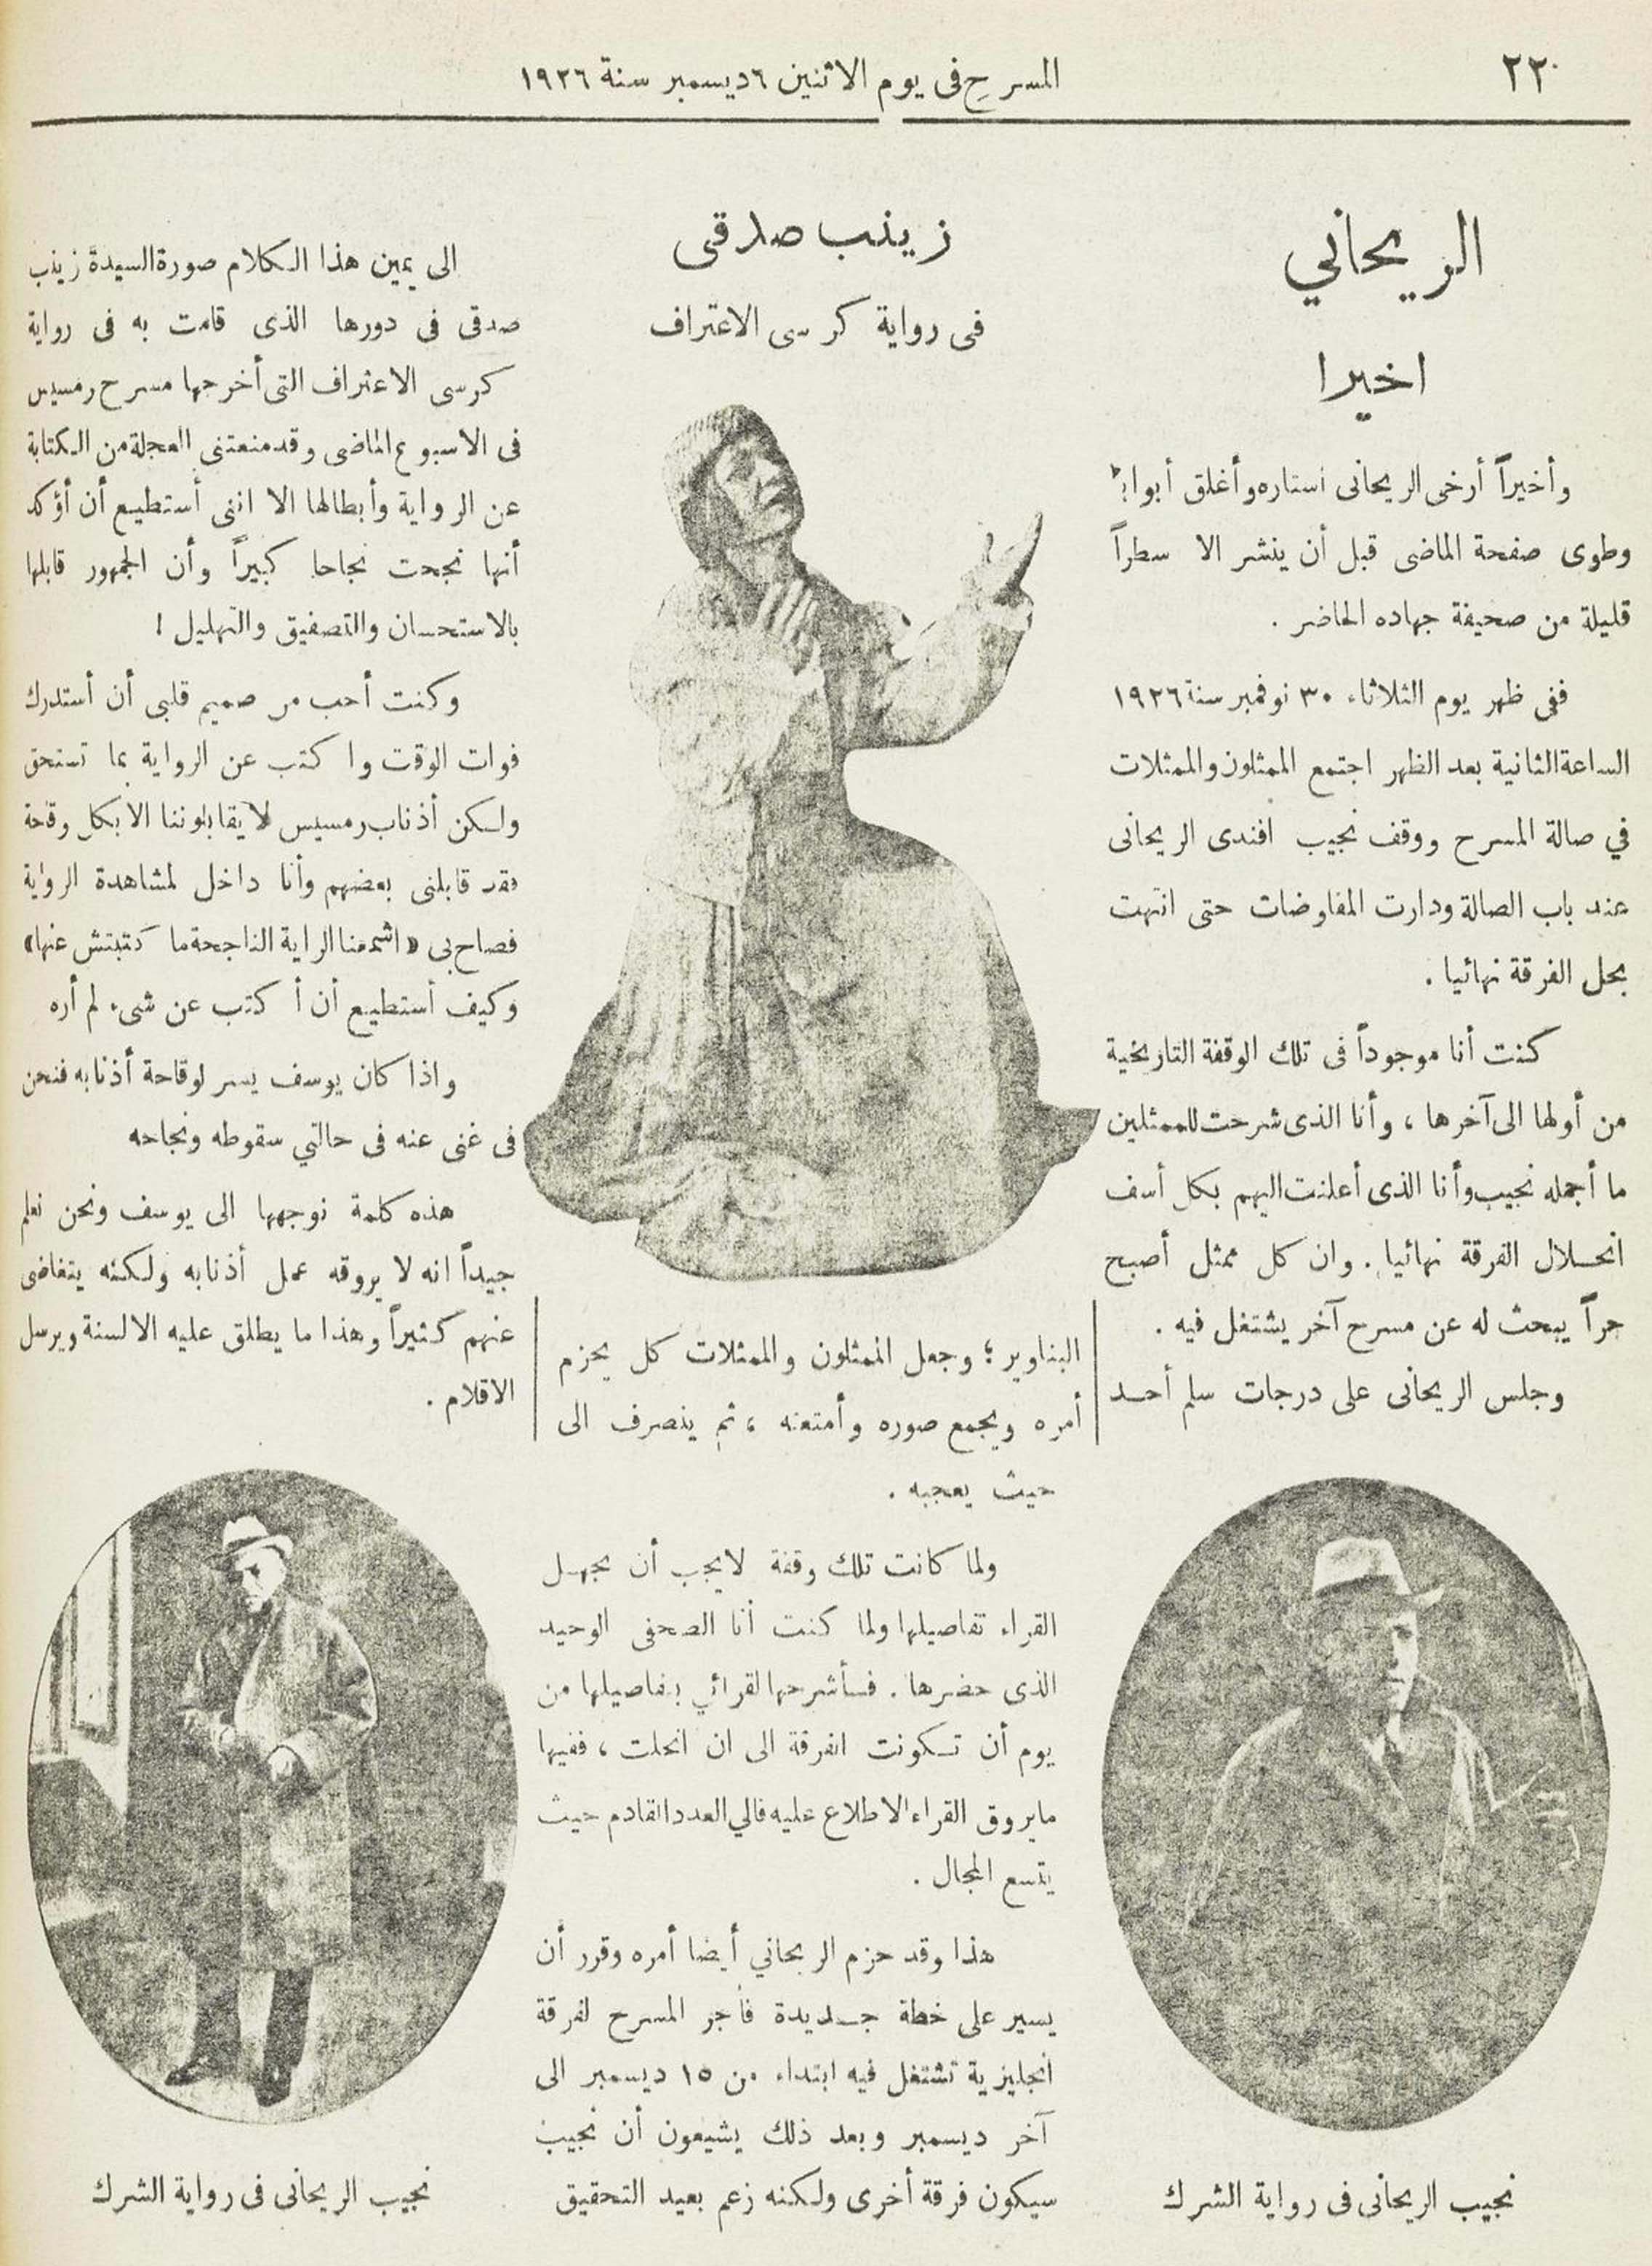 ٢٢
المسرح فى يوم الاثنين ٦ ديسمبر سنة ١٩٢٦
الريحاني
اخيرا
وأخيراً أرخى الريحانى أستاره وأغلق أبوابه
وطوى صفحة الماضى قبل أن ينشر الا سطراً
قليلة من صحيفة جهاده الحاضر .
ففى ظهر يوم الثلاثاء ٣٠ نوفمبر سنة ١٩٢٦
الساعة الثانية بعد الظهر اجتمع الممثلون والممثلات
في صالة المسرح ووقف نجيب افندى الريحانى
عند باب الصالة ودارت المفاوضات حتى انتهت
بحل الفرقة نهائيا .
كنت أنا موجوداً فى تلك الوقفة التاريخية
من أولها الى آخرها ، وأنا الذى شرحت للممثلين
ما أجمله نجيب وأنا الذى أعلنت اليهم بكل أسف
انحلال الفرقة نهائيا . وان كل ممثل أصبح
حراً يبحث له عن مسرح آخر يشتغل فيه .
وجلس الريحانى على درجات سلم أحد
نجيب الريحانى فى رواية الشرك
زينب صدقى
فى رواية كرسى الاعتراف
البناوير ؛ وجعل الممثلون والممثلات كل يحزم
أمره ويجمع صوره وأمتعته ، ثم ينصرف الى
حيث يعجبه .
ولما كانت تلك وقفة لايجب أن يجهل
القراء تفاصيلها ولما كنت أنا الصحفى الوحيد
الذى حضرها . فسأشرحها لقرائي بتفاصيلها من
يوم أن تكونت الفرقة الى ان انحلت ، ففيها
مايروق القراء الاطلاع عليه فالي العدد القادم حيث
يتسع المجال .
هذا وقد حزم الريحاني أيضا أمره وقرر أن
يسير على خطة جديدة فأجر المسرح لفرقة
انجليزية تشتغل فيه ابتداء من ١٥ ديسمبر الى
آخر ديسمبر وبعد ذلك يشيعون أن نجيب
سيكون فرقة أخرى ولكنه زعم بعيد التحقيق
الى يمين هذا الكلام صورة السيدة زينب
صدقى فى دورها الذى قامت به فى رواية
كرسى الاعتراف التى أخرجها مسرح رمسيس
فى الاسبوع الماضى وقد منعتنى العجلة من الكتابة
عن الرواية وأبطالها الا اننى أستطيع أن أؤكد
أنها نجحت نجاحا كبيراً وأن الجمهور قابلها
بالاستحسان والتصفيق والتهليل !
وكنت أحب من صميم قلبى أن أستدرك
فوات الوقت واكتب عن الرواية بما تستحق
ولكن أذناب رمسيس لا يقابلوننا الا بكل وقحة
فقد قابلنى بعضهم وأنا داخل لمشاهدة الرواية
فصاح بى « اشمعنا الراية الناجحة ما كتبتش عنها »
وكيف أستطيع أن أكتب عن شىء لم أره
واذا كان يوسف يسر لوقاحة أذنابه فنحن
فى غنى عنه فى حالتي سقوطه ونجاحه
هذه كلمة نوجهها الى يوسف ونحن نعلم
جيداً انه لا يروقه عمل أذنابه ولكنه يتغاضى
عنهم كثيراً وهذا ما يطلق عليه الالسنة ويرسل
الاقلام .
نجيب الريحانى فى رواية الشرك